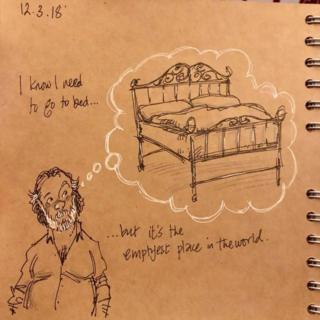 12.3.18
I know I need
to go to bed...
...but it's the
emptyest place in the world.